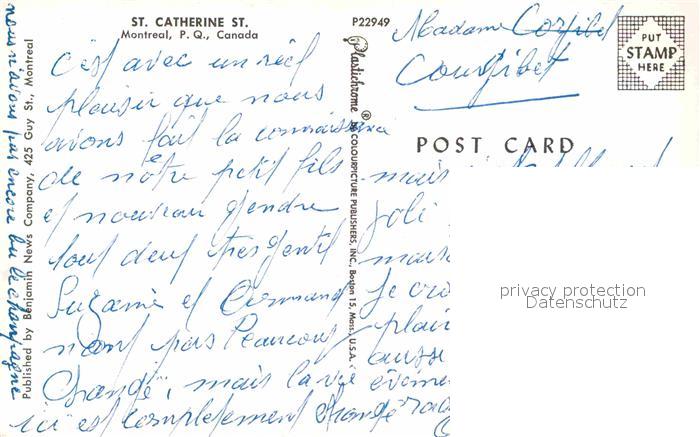 ST. CATHERINE ST.
Montreal, P. Q., Canada
P22949
PUT
STAMP
HERE
POST CARD
Madame
Courgibet
C'est avec un réel
plaisir que nous
avons fait la connaissance
de notre petit fils
et nouveau gendre
tout deux très gentil
Suzanne et Armand
n'ont pas beaucoup
changé, mais la vie
ici est complètement changé
nous n'avons pas encore bu le champagne
mais
Joli
mais
Je cro
plai
aussi
Published by Benjamin News Company, 425 Guy St., Montreal
Plastichrome ® by COLOURPICTURE PUBLISHERS, INC., Boston 15, Mass. U.S.A.
privacy protection
Datenschutz